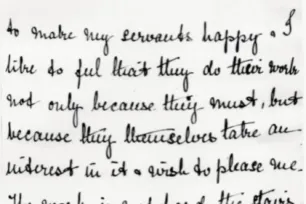 to make my servants happy. I
like to feel that they do their work
not only because they must, but
because they themselves take an
interest in it & wish to please me.
The work is not hard the stairs